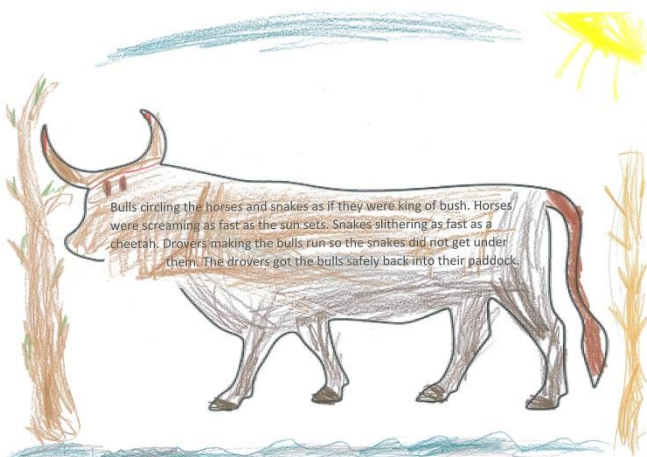 Bulls circling the horses and snakes as if they were king of bush. Horses
were screaming as fast as the sun sets. Snakes slithering as fast as a
cheetah. Drovers making the bulls run so the snakes did not get under
them. The drovers got the bulls safely back into their paddock.